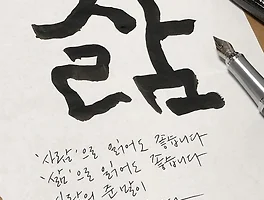 삶
'사람'으로 읽어도 좋습니다
'삶'으로 읽어도 좋습니다
사람의 준말이